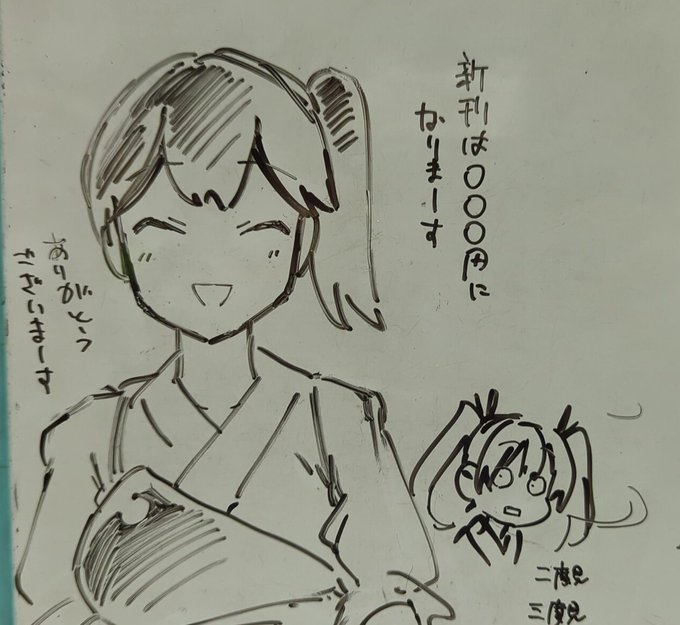 新刊は〇〇〇円に
なりまーす
ありがとう
ございまーす
二度見
三度見